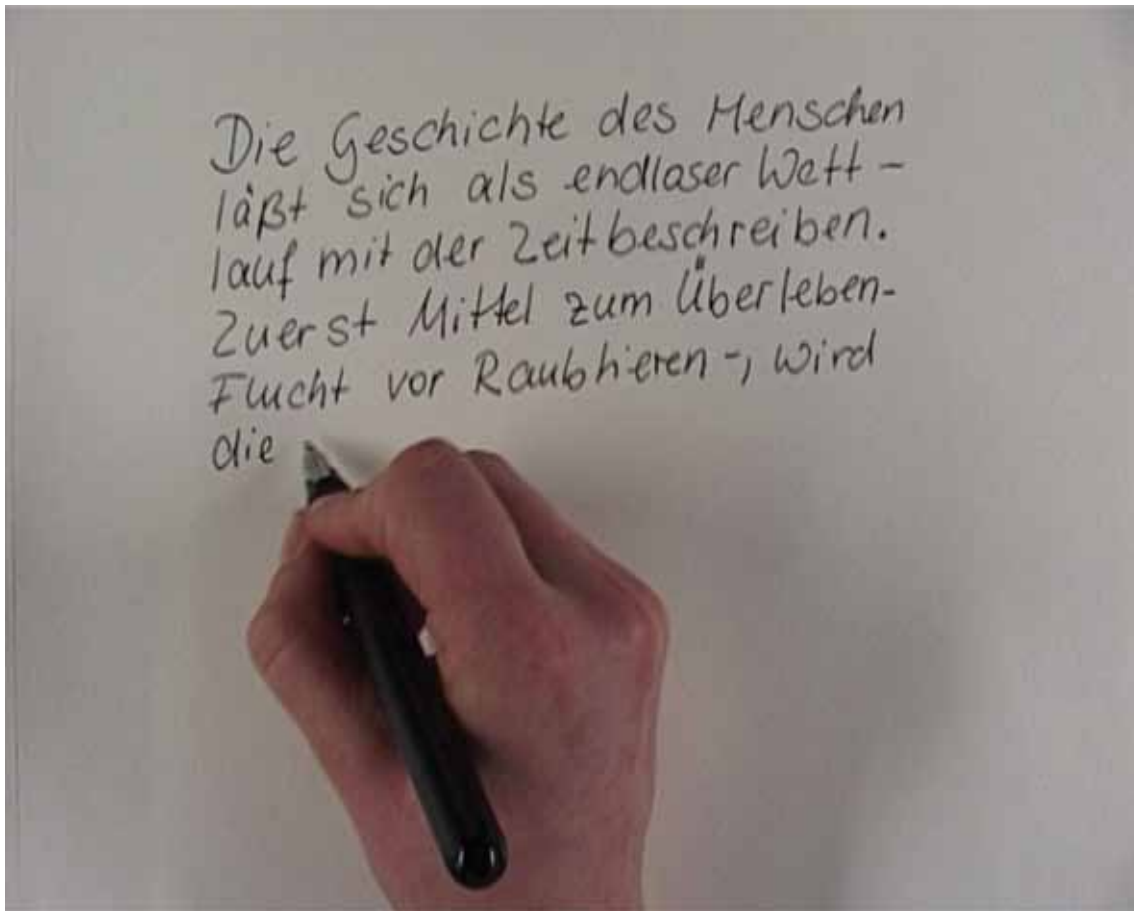 Die Geschichte des Menschen
läßt sich als endloser Wett-
lauf mit der Zeit beschreiben.
Zuerst Mittel zum Überleben-
Flucht vor Raubtieren-, wird
die